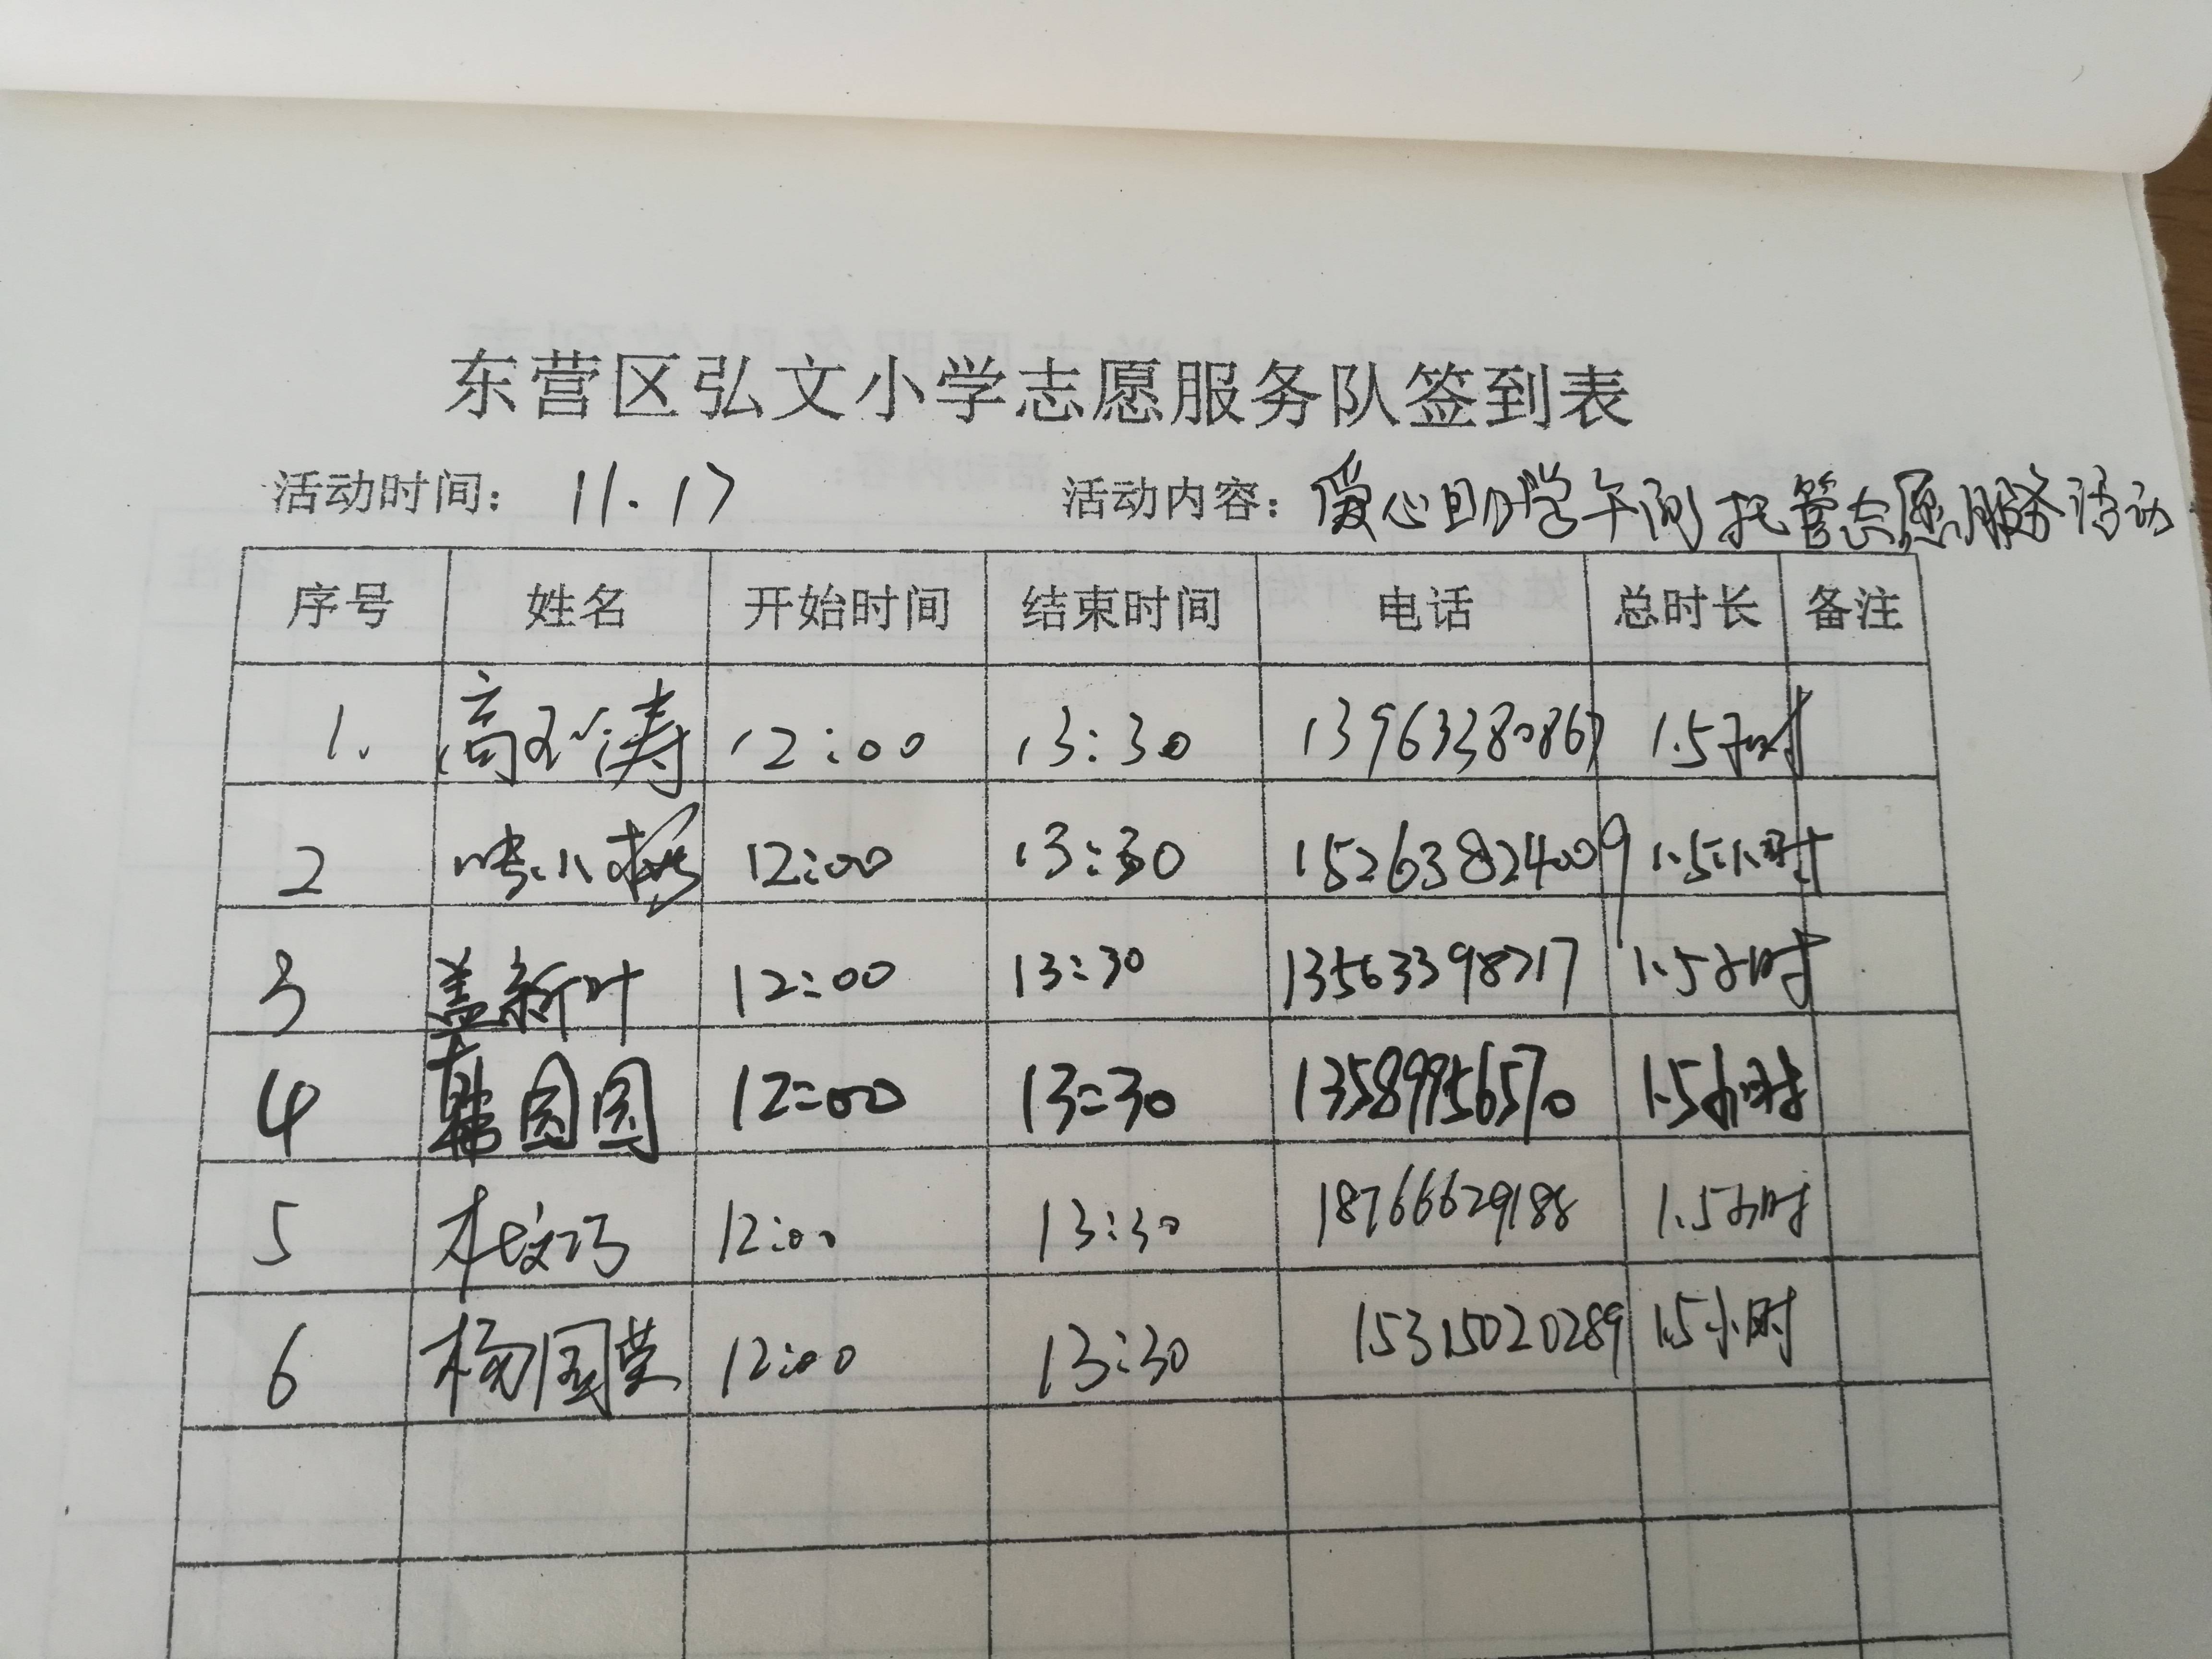 东营区弘文小学志愿服务队签到表
活动时间: 11.17 活动内容: 爱心助学午间托管志愿服务活动
序号 姓名 开始时间 结束时间 电话 总时长 备注
1. 高玉涛 12:00 13:30 13963380867 1.5小时
2 小 12:00 13:30 15263824009 1.5小时
3 盖新叶 12:00 13:30 13563398717 1.5小时
4 韩圆圆 12:00 13:30 13589956570 1.5小时
5 杜文巧 12:00 13:30 18766629188 1.5小时
6 杨国荣 12:00 13:30 15315020289 1.5小时